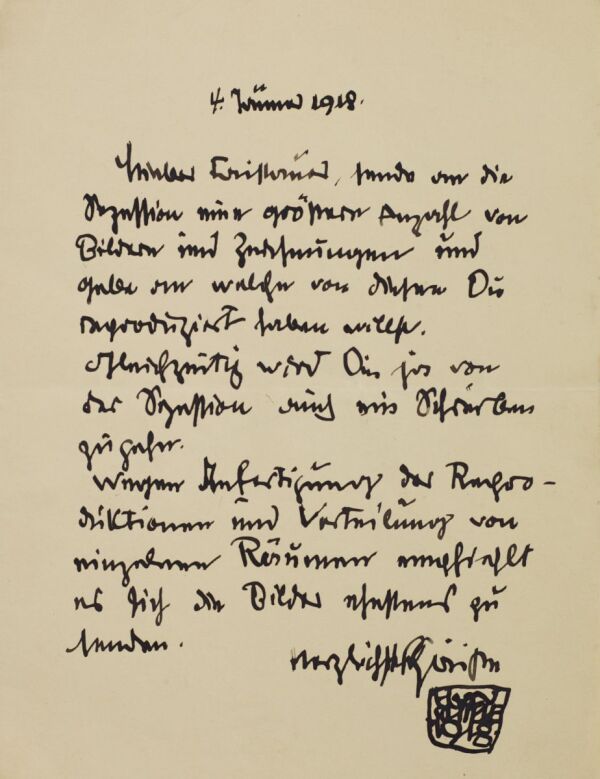 4. Jänner 1918.
Lieber Faistauer, sende an die
Sezession eine größere Anzahl von
Bildern und Zeichnungen und
gebe an welche von diesen Du
reproduziert haben willst.
Gleichzeitig wird Dir ja von
der Sezession auch ein Schreiben
zugehn.
Wegen Anfertigung der Repro-
duktionen und Verteilung von
einzelnen Räumen empfiehlt
es sich die Bilder ehestens zu
senden.
Herzlichst